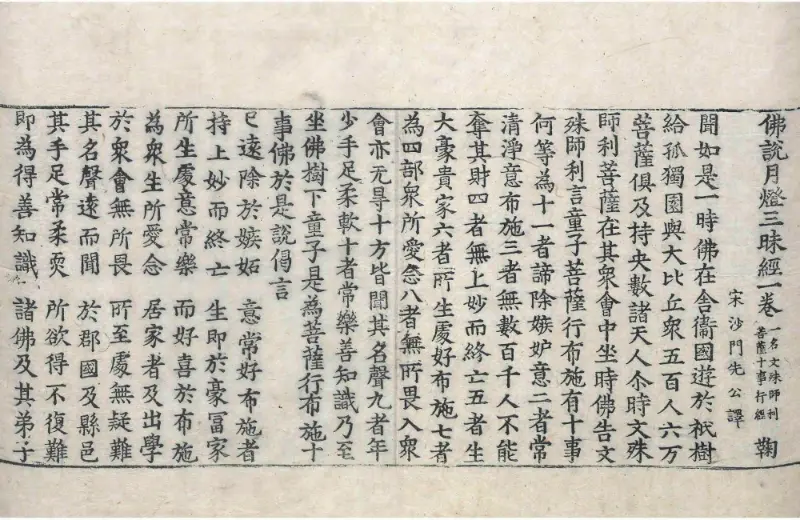 佛說月燈三昧經一卷 一名文殊師利菩薩十事行經 鞠
宋沙門先公譯
聞如是一時佛在舍衞國遊於祇樹
給孤獨園與大比丘衆五百人六万
菩薩俱及持央數諸天人尒時文殊
師利菩薩在其衆會中坐時佛告文
殊師利言童子菩薩行布施有十事
何等為十一者諦除嫉妒意二者常
清淨意布施三者無數百千人不能
奪其財四者無上妙而終亡五者生
大豪貴家六者所生處好布施七者
為四部衆所愛念八者無所畏入衆
會亦无㝵十方皆聞其名聲九者年
少手足柔軟十者常樂善知識乃至
坐佛樹下童子是為菩薩行布施十
事佛於是說偈言
已遠除於嫉妬 意常好布施者
持上妙而終亡 生即於豪冨家
所生處意常樂 而好喜於布施
為衆生所愛念 居家者及出學
於衆會無所畏 所至處無疑難
其名聲遠而聞 於郡國及縣邑
其手足常柔耎 所欲得不復難
即為得善知識 諸佛及其弟子